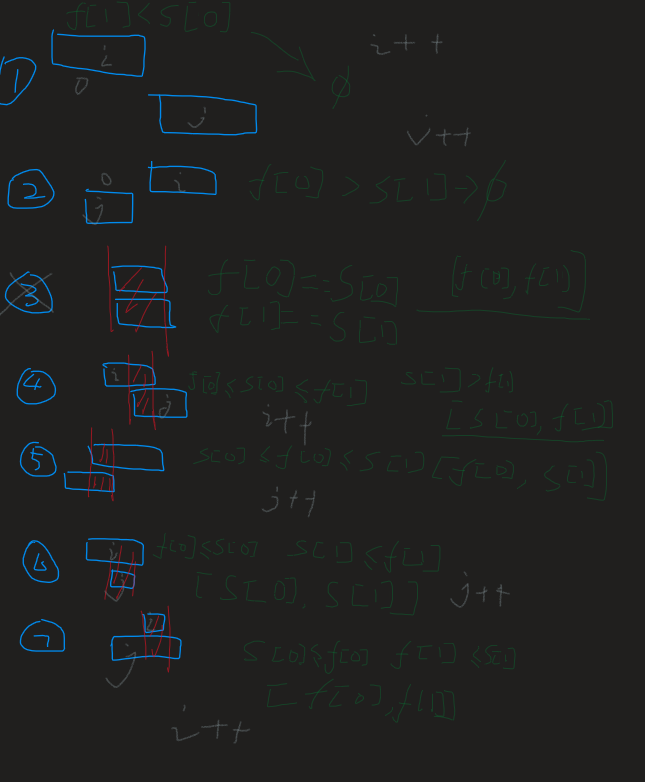 f[1]<S[0]
i i++
1
0 ∅
j j++
2 0 i f[0] > S[1] → ∅
j
3 f[0]==S[0] [f[0], f[1]]
f[1]==S[1]
4 i f[0]≤S[0]≤f[1] S[1]>f[1]
j i++ [S[0], f[1]]
5 S[0]≤f[0]≤S[1] [f[0], S[1]]
j++
6 i f[0]≤S[0] S[1]≤f[1]
j [S[0], S[1]] j++
7 i
j S[0]≤f[0] f[1]≤S[1]
[f[0], f[1]]
i++